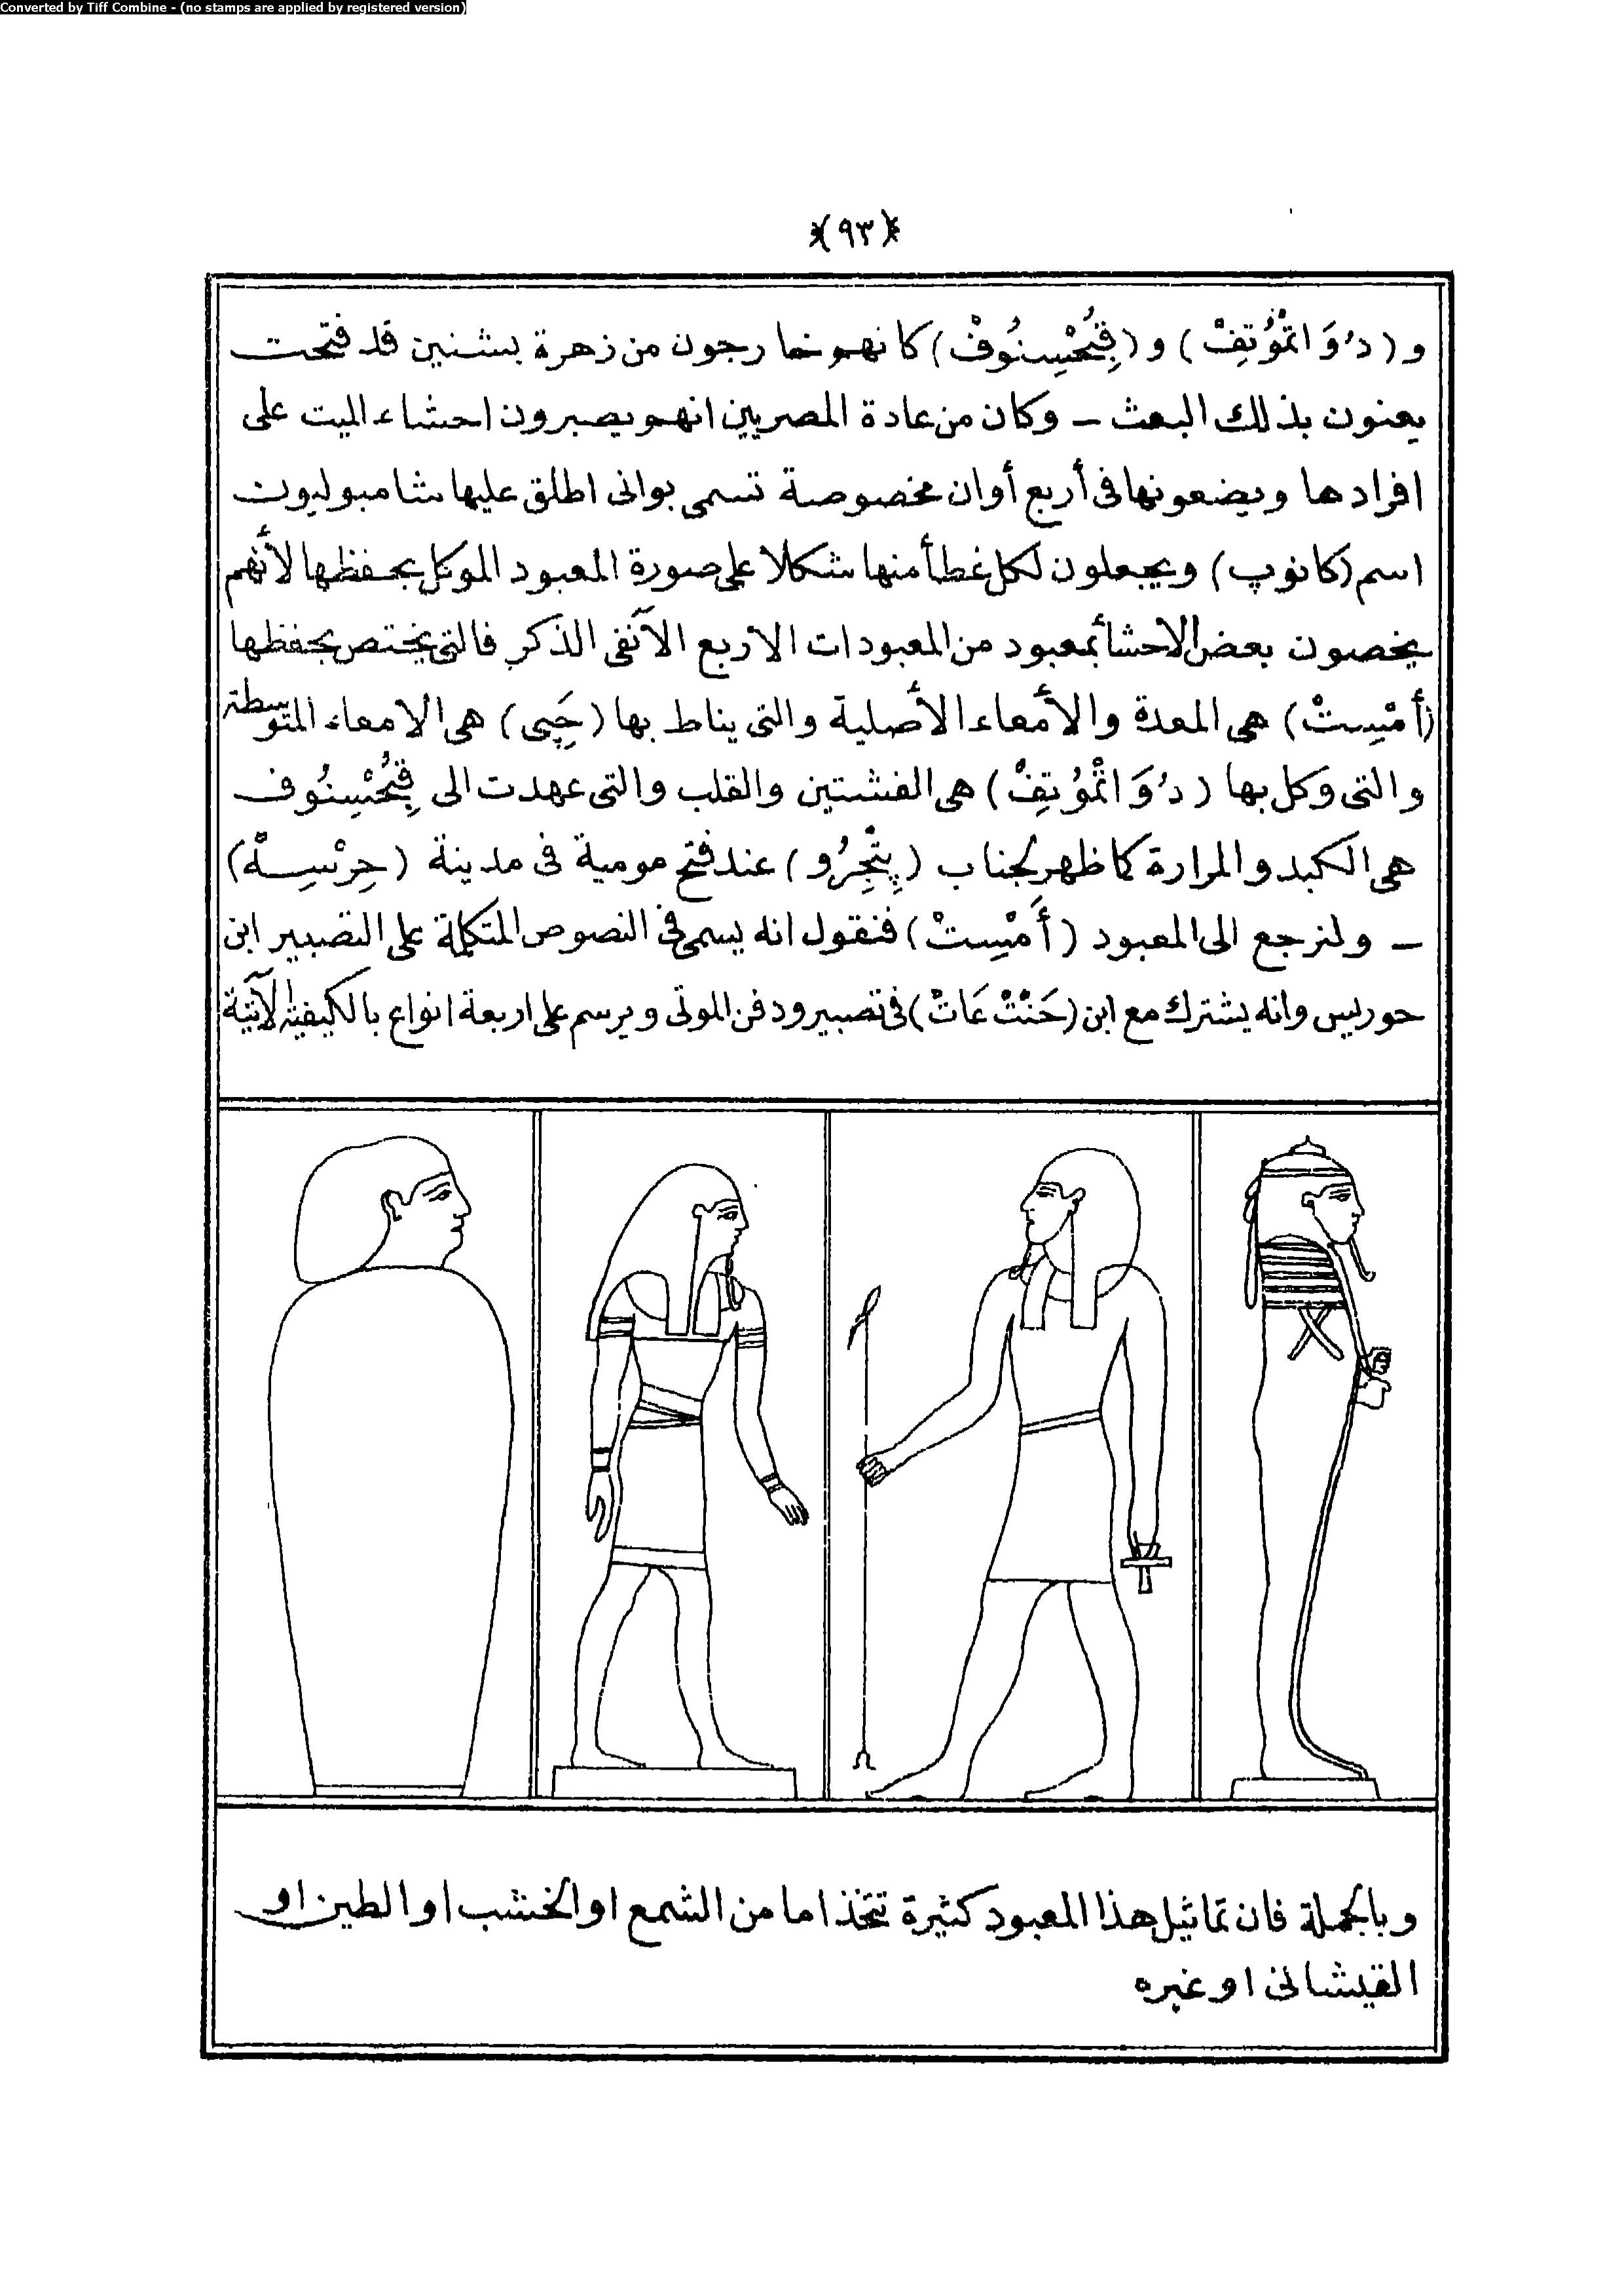 Converted by Tiff Combine - (no stamps are applied by registered version)
(٩٣)
و (دُوَاتْمُوُتِفْ) و (قِبْحُسِنُوفْ) كانهم خارجون من زهرة بشنين قد فتحت
يعنون بذلك البعث – وكان من عادة المصريين انهم يصبرون احشاء الميت على
افرادها ويضعونها فى أربع أوان مخصوصة تسمى بوانى اطلق عليها شامبوليون
اسم (كانوپ) ويجعلون لكل غطأ منها شكلا على صورة المعبود الموكل بحفظها لأنهم
يخصون بعض الاحشأ بمعبود من المعبودات الاربع الآنفى الذكر فالتى يختص بحفظها
(أَمْسِتْ) هى المعدة والأمعاء الأصلية والتى يناط بها (حَپِى) هى الامعاء المتوسطة
والتى وكل بها (دُوَاتْمُوُتِفْ) هى الفشتين والقلب والتى عهدت الى قِبْحُسِنُوف
هى الكبد والمرارة كما ظهر لجناب (پِتْجِرُو) عند فتح مومية فى مدينة (حِرْسِهْ)
– ولنرجع الى المعبود (أَمْسِتْ) فنقول انه يسمى فى النصوص المتكلمة على التصبير ابن
حوريس وانه يشترك مع ابن (حَنْتْ عَاتْ) فى تصبير ودفن الموتى ويرسم على اربعة انواع بالكيفية الآتية
وبالجملة فان تماثيل هذا المعبود كثيرة تتخذ اما من الشمع او الخشب او الطين او
القيشانى او غيره